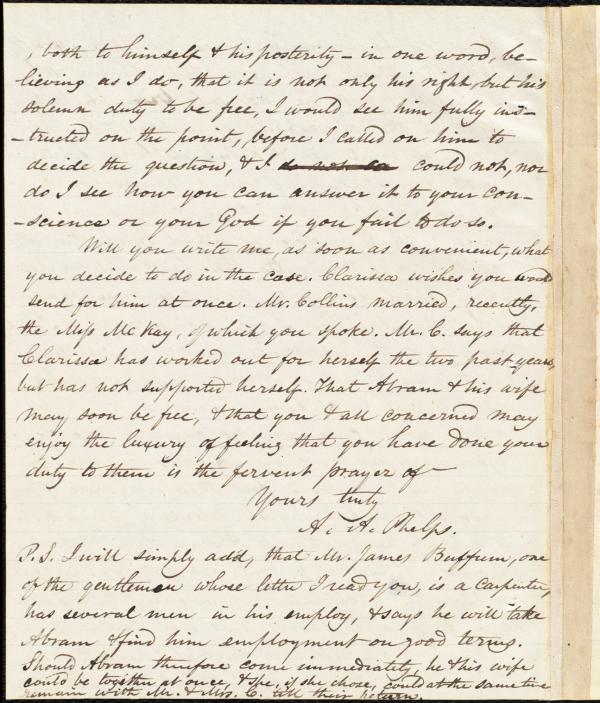 , both to himself & his posterity – in one word, be-
lieving as I do, that it is not only his right, but his
solemn duty to be free, I would see him fully ins-
-tructed on the point, before I called on him to
decide the question, & I do not ca could not, nor
do I see how you can answer it to your con-
-science or your God if you fail to do so.
Will you write me, as soon as convenient, what
you decide to do in the case. Clarissa wishes you would
send for him at once. Mr. Collins married, recently,
the Miss McKay, of which you spoke. Mr. C. says that
Clarissa has worked out for herself the two past years,
but has not supported herself. That Abram & his wife
may soon be free, & that you & all concerned may
enjoy the luxury of feeling that you have done your
duty to them is the fervent prayer of
Yours truly
A. A. Phelps.
P.S. I will simply add, that Mr. James Buffum, one
of the gentlemen whose letter I read you, is a carpenter,
has several men in his employ, & says he will take
Abram & find him employment on good terms.
Should Abram therefore come immediately, he & his wife
could be together at once, & she, if she chose, could at the same time
remain with Mr. & Mrs. C. till their return.